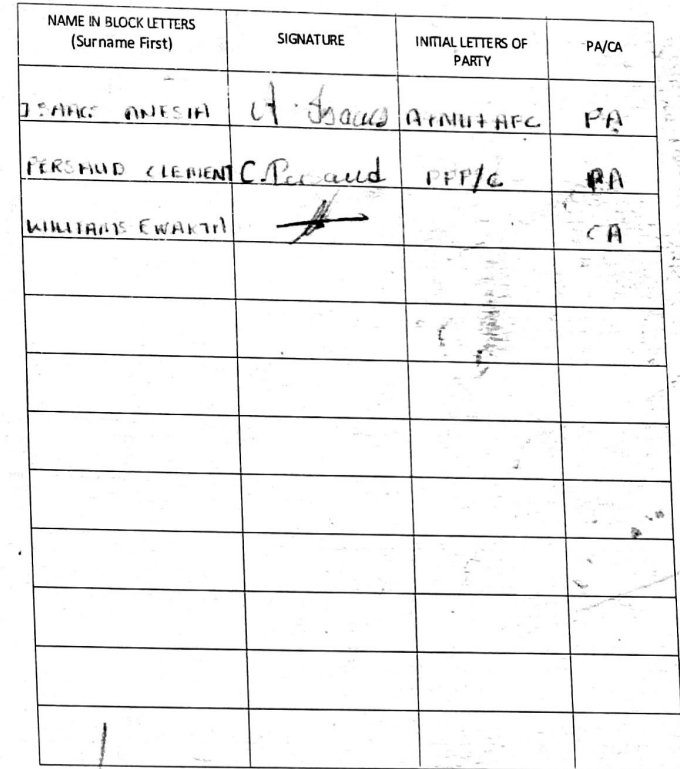 NAME IN BLOCK LETTERS (Surname First) SIGNATURE INITIAL LETTERS OF PARTY PA/CA
ISAACS ANESIA A. Isaacs APNU+AFC PA
PERSAUD CLEMENT C. Persaud PPP/C PA
WILLIAMS EWARTH CA